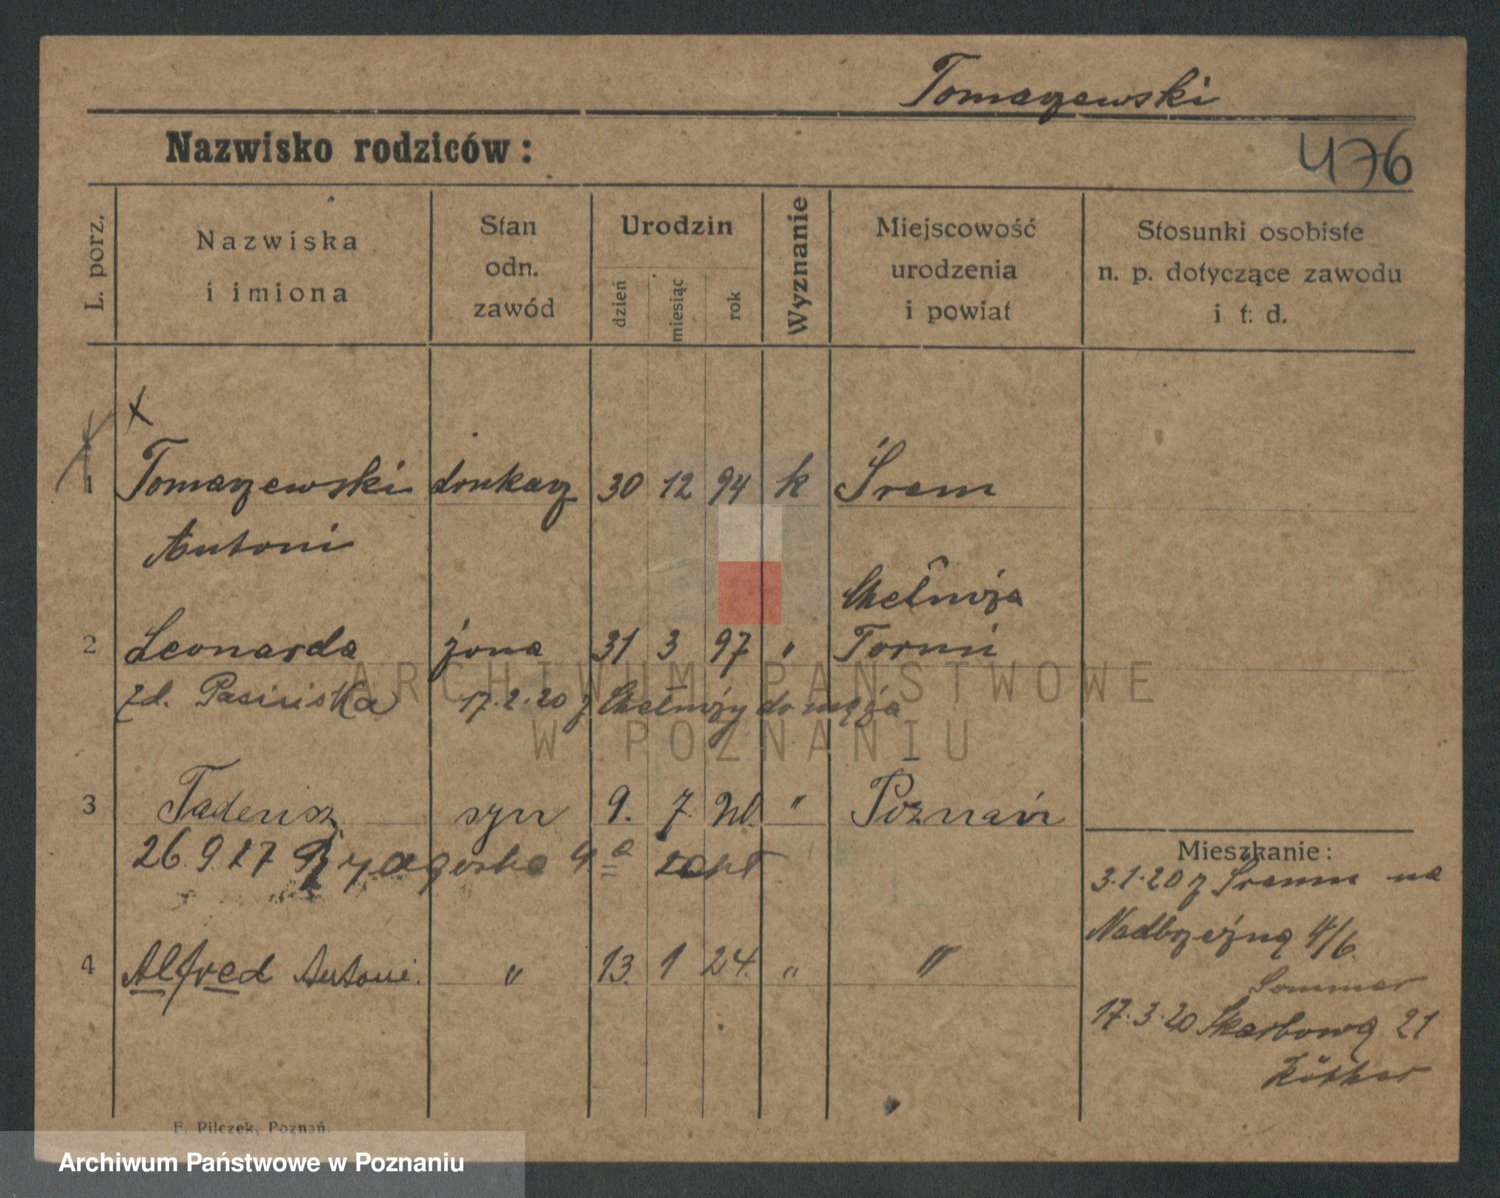 Tomaszewski
Nazwisko rodziców:
476
L. porz.
Nazwiska
i imiona
Stan
odn.
zawód
Urodzin
dzień
miesiąc
rok
Wyznanie
Miejscowość
urodzenia
i powiat
Stosunki osobiste
n. p. dotyczące zawodu
i t. d.
x
1 Tomaszewski drukarz 30 12 94 k Śrem
Antoni
Chełmża
2 Leonarda żona 31 3 97 " Toruń
zd. Pasińska 17.2.20 z Chełmży do męża
3 Tadeusz syn 9. 7. " Poznań
26.9.27 4a
4 Alfred Antoni. " 13. 1 24. " "
Mieszkanie:
3.1.20 z Śremu na
Nadbrzeżną 4/6
Sommer
17.3.20 Skarbową 21
F. Pilczek, Poznań.
ARCHIWUM PAŃSTWOWE
W POZNANIU
Archiwum Państwowe w Poznaniu